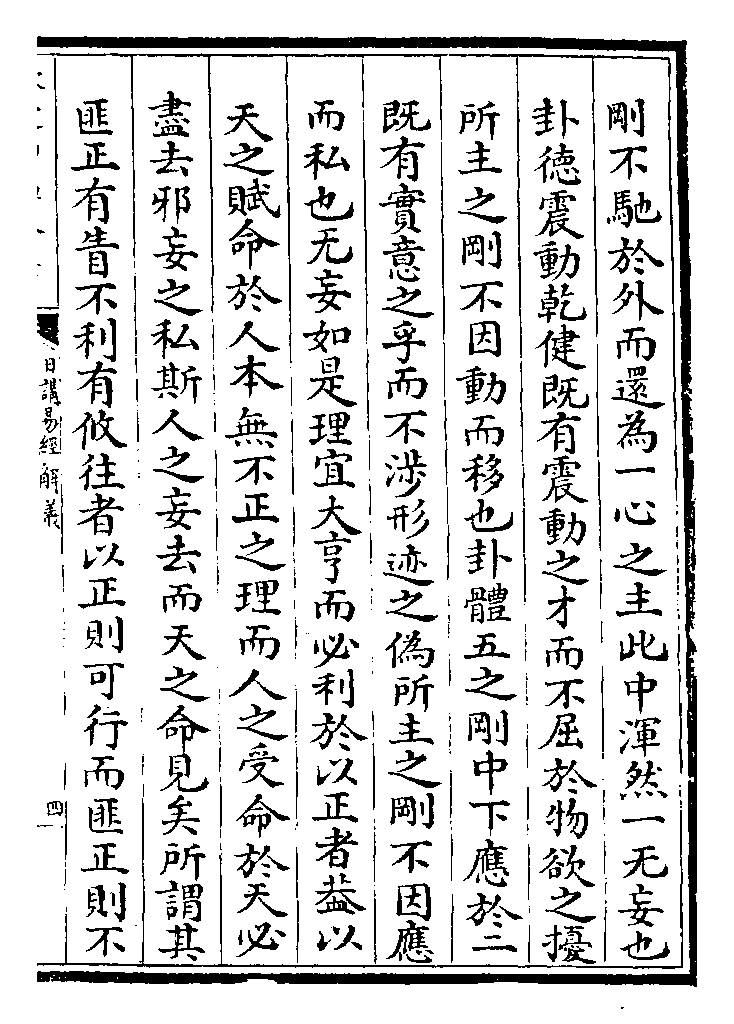 剛不馳於外而還為一心之主此中渾然一无妄也
卦德震動乾健既有震動之才而不屈於物欲之擾
所主之剛不因動而移也卦體五之剛中下應於二
既有實意之孚而不涉形迹之偽所主之剛不因應
而私也无妄如是理宜大亨而必利於以正者葢以
天之賦命於人本無不正之理而人之受命於天必
盡去邪妄之私斯人之妄去而天之命見矣所謂其
匪正有眚不利有攸往者以正則可行而匪正則不
日講易經解義
四